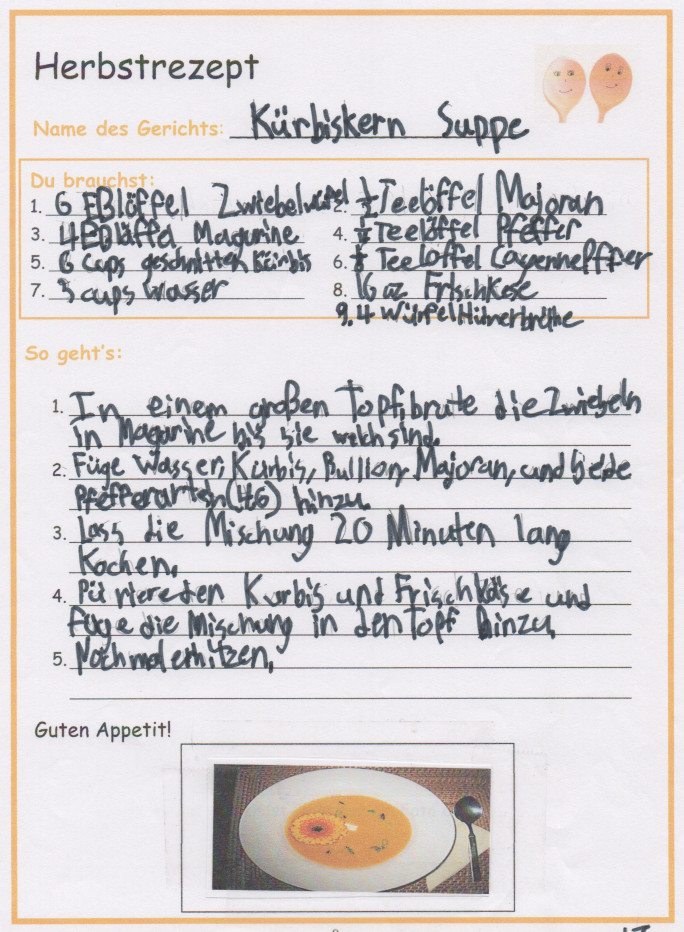 Herbstrezept
Name des Gerichts: Kürbiskern Suppe
Du brauchst:
1. 6 Eßlöffel Zwiebelwürfel 2. ½ Teelöffel Majoran
3. 4 Eßlöffel Magurine 4. Teelöffel Pfeffer
5. 6 cups geschnitten Kürbis 6. Teelöffel Cayennelffper
7. 3 cups Wasser 8. 16 oz Frischkese
9. 4 Würfel Hünerbrühe
So geht's:
1. In einem großen Topf, brate die Zwiebeln
in Magurine bis sie weich sind.
2. Füge Wasser, Kürbis, Bullion, Majoran, und beide
Pfefferarten (4&6) hinzu.
3. Lass die Mischung 20 Minuten lang
Kochen.
4. Püriere den Kurbis und Frischkäse und
füge die Mischung in den Topf hinzu.
5. Nochmal erhitzen.
Guten Appetit!